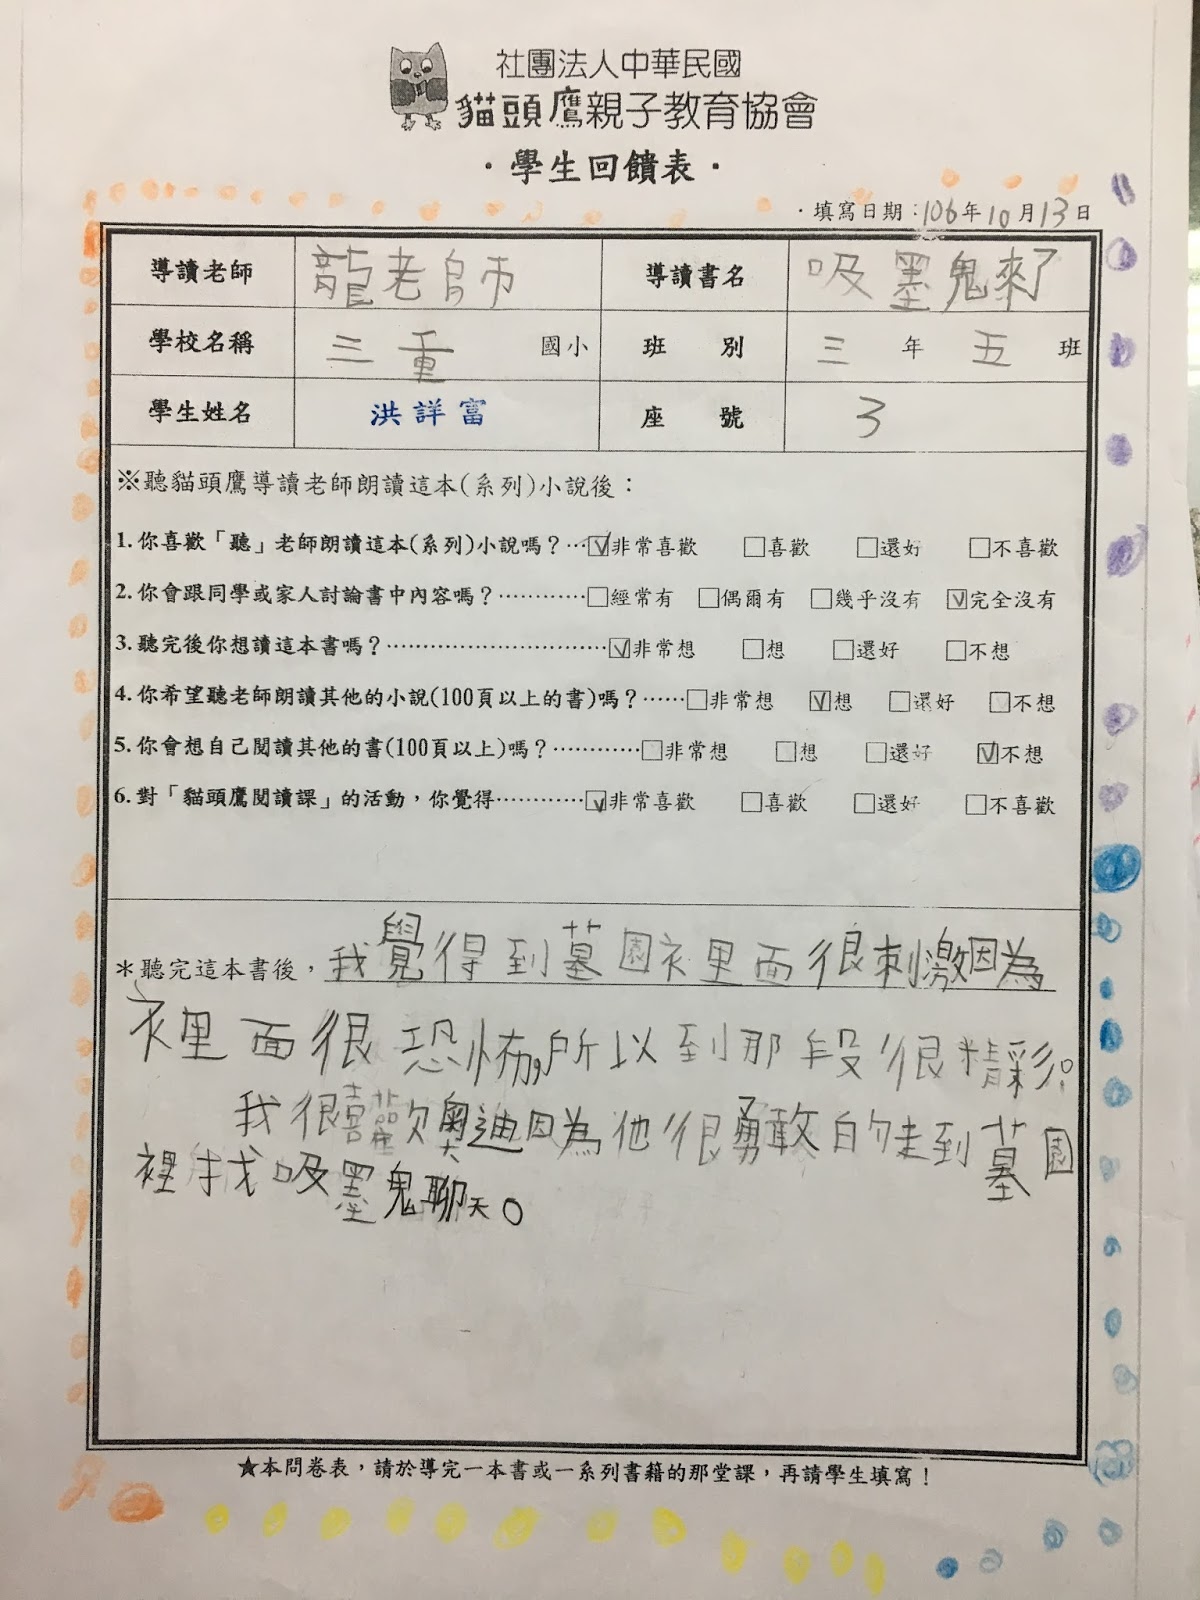 社團法人中華民國
貓頭鷹親子教育協會
·學生回饋表·
·填寫日期：106年10月13日
導讀老師 龍老師 導讀書名 吸墨鬼來了
學校名稱 三重 國小 班 別 三 年 五 班
學生姓名 洪詳富 座 號 3
※聽貓頭鷹導讀老師朗讀這本(系列)小說後：
1.你喜歡「聽」老師朗讀這本(系列)小說嗎？…☑非常喜歡 □喜歡 □還好 □不喜歡
2.你會跟同學或家人討論書中內容嗎？…………□經常有 □偶爾有 □幾乎沒有 ☑完全沒有
3.聽完後你想讀這本書嗎？…………………………☑非常想 □想 □還好 □不想
4.你希望聽老師朗讀其他的小說(100頁以上的書)嗎？……□非常想 ☑想 □還好 □不想
5.你會想自己閱讀其他的書(100頁以上)嗎？…………□非常想 □想 □還好 ☑不想
6.對「貓頭鷹閱讀課」的活動，你覺得…………☑非常喜歡 □喜歡 □還好 □不喜歡
＊聽完這本書後，我覺得到墓園裡面很刺激因為
裡面很恐怖,所以到那段很精彩。
我很喜歡奧迪因為他很勇敢的走到墓園
裡找吸墨鬼聊天。
★本問卷表，請於導完一本書或一系列書籍的那堂課，再請學生填寫！